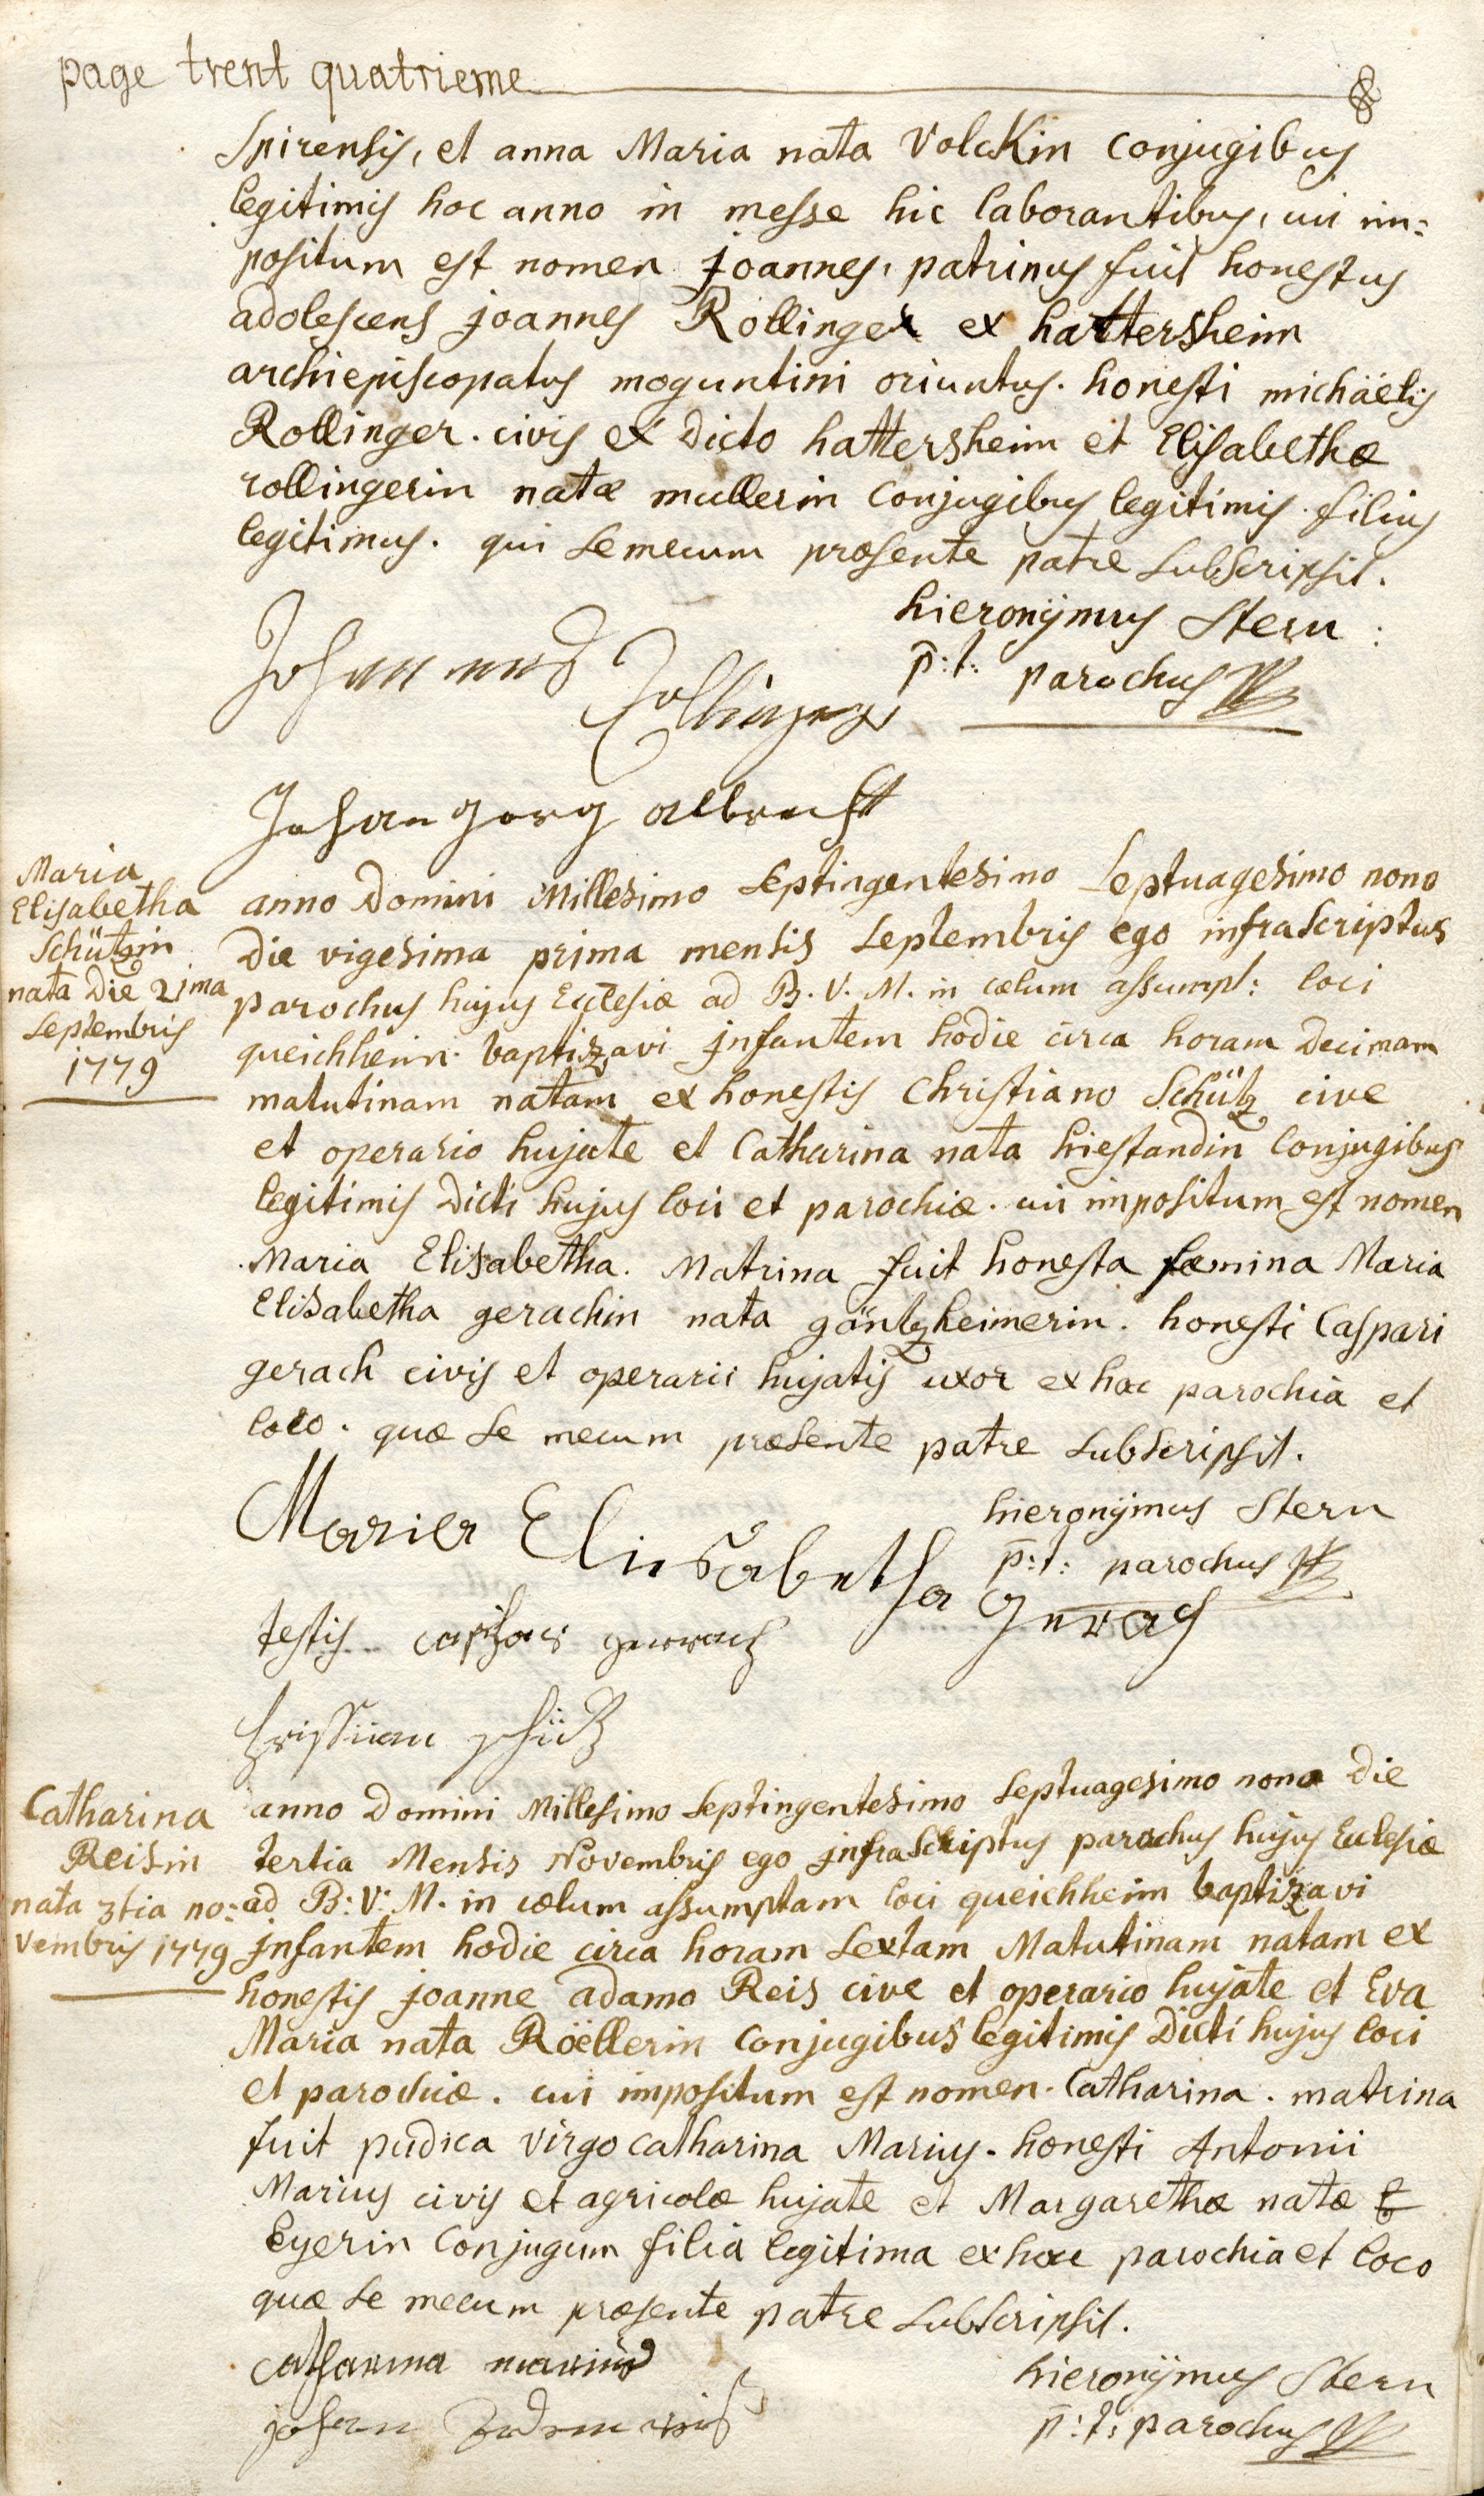 page trent quatrieme
Spirensis, et anna Maria nata Volckin conjugibus
legitimis hoc anno in messe hic laborantibus, cui im=
positum est nomen joannes, patrinus fuit honestus
adolescens joannes Rollinger ex hattersheim
archiepiscopatus moguntini oriuntus. honesti michäelis
Rollinger. civis ex dicto hattersheim et Elisabethæ
rollingerin natæ mullerin conjugibus legitimis. filius
legitimus. qui se mecum præsente patre subscripsit.
hieronÿmus Stern
p̄:t: parochus
Johannes
Rollinger
Johan Georg albrecht
Maria
Elisabetha
Schützin
nata die 21ma
Septembris
1779
anno Domini Millesimo Septingentesimo Septuagesimo nono
Die vigesima prima mensis Septembris ego infrascriptus
parochus hujus Ecclesiæ ad B. V. M. in cœlum assumpt: loci
queichheim. baptizavi jnfantem hodie circa horam decimam
matutinam natam ex honestis Christiano Schütz cive
et operario hujate et Catharina nata hiestandin Conjugibus
legitimis dicti hujus loci et parochiæ. cui impositum est nomen
Maria Elisabetha. Matrina fuit honesta fæmina Maria
Elisabetha gerachin nata gäntzheimerin. honesti Caspari
gerach civis et operarii hujatis uxor ex hac parochia et
loco. quæ se mecum præsente patre subscripsit.
hieronÿmus Stern
p̄:t: parochus
Maria Eliesabetha Gerach
testis Caspar gerrach
Christian schütz
Catharina
Reisin
nata 3tia no=
vembris 1779
anno Domini Millesimo Septingentesimo Septuagesimo nono Die
tertia Mensis Novembris ego jnfrascriptus parochus hujus Ecclesiæ
ad B: V: M. in cœlum assumptam loci queichheim baptizavi
jnfantem hodie circa horam Sextam Matutinam natam ex
honestis joanne adamo Reis cive et operario hujate et Eva
Maria nata Röellerin Conjugibus legitimis Dicti hujus loci
et parochiæ. cui impositum est nomen. Catharina. matrina
fuit pudica virgo catharina Marius. honesti Antonii
Marius civis et agricolæ hujate et Margarethæ natæ
Eyerin Conjugum filia legitima ex hac parochia et loco
quæ se mecum præsente patre subscripsit.
Catharina marius
johann Adam reis
hieronÿmus Stern
p̄:t: parochus